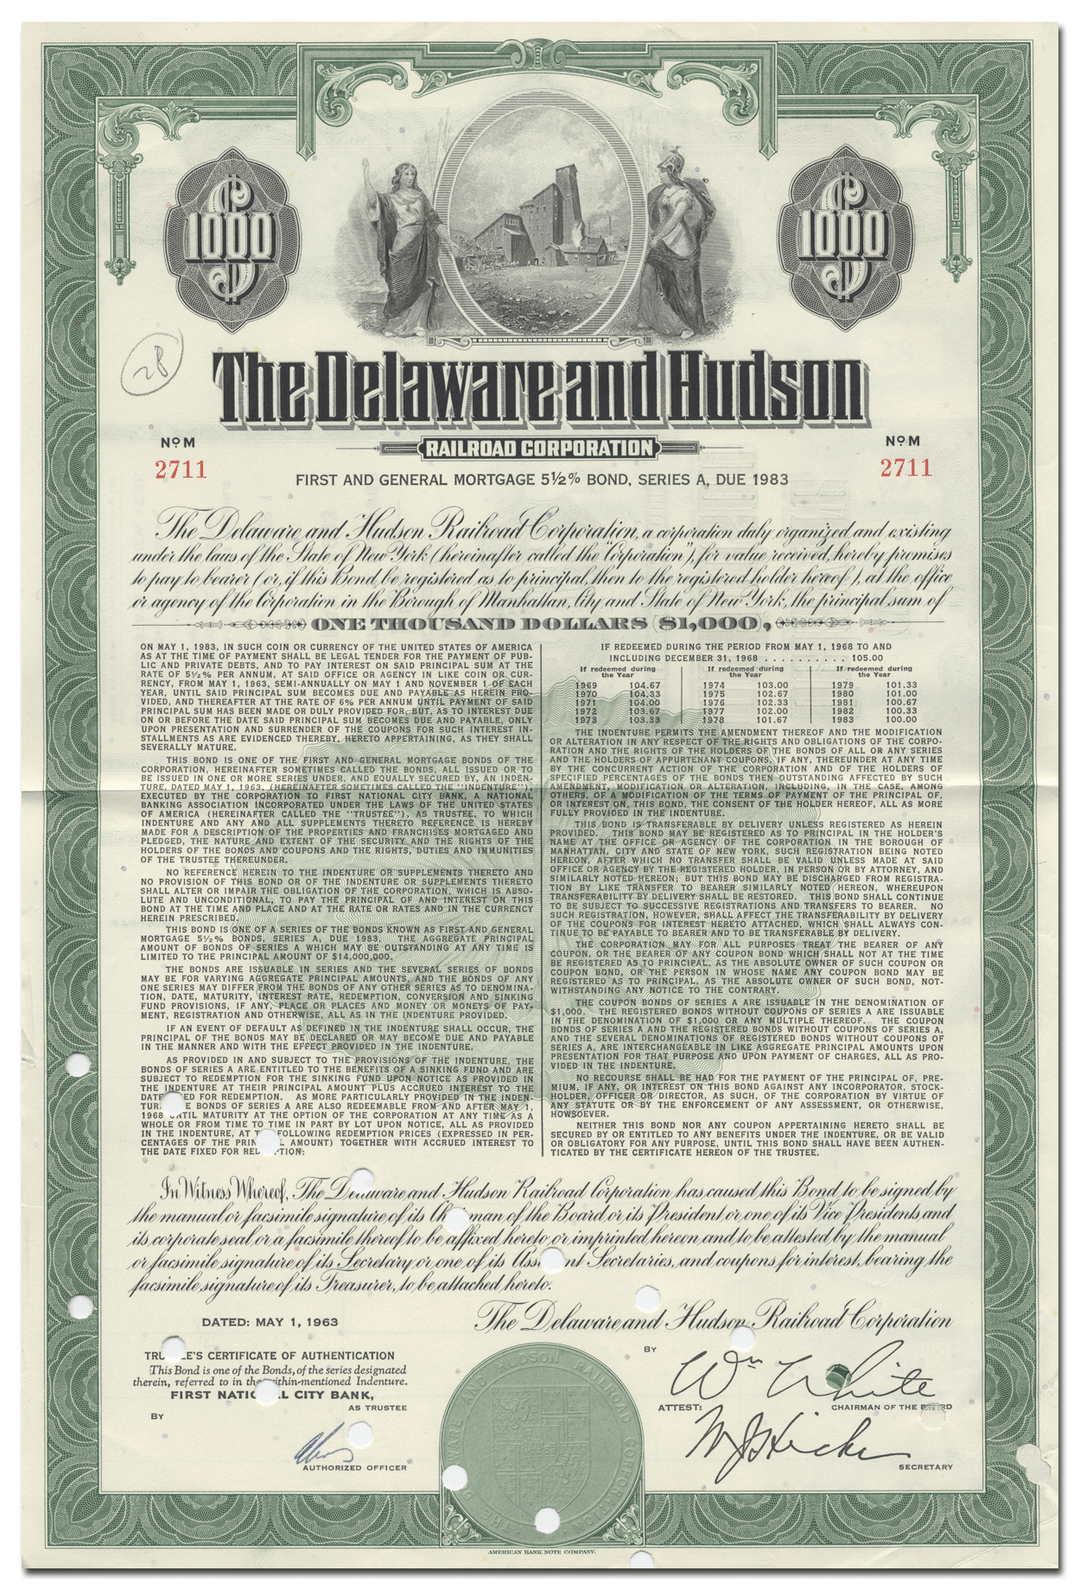 1000
1000
28
The Delaware and Hudson
RAILROAD CORPORATION
No M
2711
No M
2711
FIRST AND GENERAL MORTGAGE 5½% BOND, SERIES A, DUE 1983
The Delaware and Hudson Railroad Corporation, a corporation duly organized and existing
under the laws of the State of New York (hereinafter called the "Corporation"), for value received, hereby promises
to pay to bearer (or, if this Bond be registered as to principal, then to the registered holder hereof), at the office
or agency of the Corporation in the Borough of Manhattan, City and State of New York, the principal sum of
ONE THOUSAND DOLLARS ($1,000),
ON MAY 1, 1983, IN SUCH COIN OR CURRENCY OF THE UNITED STATES OF AMERICA
AS AT THE TIME OF PAYMENT SHALL BE LEGAL TENDER FOR THE PAYMENT OF PUB-
LIC AND PRIVATE DEBTS, AND TO PAY INTEREST ON SAID PRINCIPAL SUM AT THE
RATE OF 5½% PER ANNUM, AT SAID OFFICE OR AGENCY IN LIKE COIN OR CUR-
RENCY, FROM MAY 1, 1963, SEMI-ANNUALLY ON MAY 1 AND NOVEMBER 1 OF EACH
YEAR, UNTIL SAID PRINCIPAL SUM BECOMES DUE AND PAYABLE AS HEREIN PRO-
VIDED, AND THEREAFTER AT THE RATE OF 6% PER ANNUM UNTIL PAYMENT OF SAID
PRINCIPAL SUM HAS BEEN MADE OR DULY PROVIDED FOR, BUT, AS TO INTEREST DUE
ON OR BEFORE THE DATE SAID PRINCIPAL SUM BECOMES DUE AND PAYABLE, ONLY
UPON PRESENTATION AND SURRENDER OF THE COUPONS FOR SUCH INTEREST IN-
STALLMENTS AS ARE EVIDENCED THEREBY, HERETO APPERTAINING, AS THEY SHALL
SEVERALLY MATURE.
THIS BOND IS ONE OF THE FIRST AND GENERAL MORTGAGE BONDS OF THE
CORPORATION, HEREINAFTER SOMETIMES CALLED THE BONDS, ALL ISSUED OR TO
BE ISSUED IN ONE OR MORE SERIES UNDER, AND EQUALLY SECURED BY, AN INDEN-
TURE, DATED MAY 1, 1963, (HEREINAFTER SOMETIMES CALLED THE "INDENTURE"),
EXECUTED BY THE CORPORATION TO FIRST NATIONAL CITY BANK, A NATIONAL
BANKING ASSOCIATION INCORPORATED UNDER THE LAWS OF THE UNITED STATES
OF AMERICA (HEREINAFTER CALLED THE "TRUSTEE"), AS TRUSTEE, TO WHICH
INDENTURE AND ANY AND ALL SUPPLEMENTS THERETO REFERENCE IS HEREBY
MADE FOR A DESCRIPTION OF THE PROPERTIES AND FRANCHISES MORTGAGED AND
PLEDGED, THE NATURE AND EXTENT OF THE SECURITY AND THE RIGHTS OF THE
HOLDERS OF THE BONDS AND COUPONS AND THE RIGHTS, DUTIES AND IMMUNITIES
OF THE TRUSTEE THEREUNDER.
NO REFERENCE HEREIN TO THE INDENTURE OR SUPPLEMENTS THERETO AND
NO PROVISION OF THIS BOND OR OF THE INDENTURE OR SUPPLEMENTS THERETO
SHALL ALTER OR IMPAIR THE OBLIGATION OF THE CORPORATION, WHICH IS ABSO-
LUTE AND UNCONDITIONAL, TO PAY THE PRINCIPAL OF AND INTEREST ON THIS
BOND AT THE TIME AND PLACE AND AT THE RATE OR RATES AND IN THE CURRENCY
HEREIN PRESCRIBED.
THIS BOND IS ONE OF A SERIES OF THE BONDS KNOWN AS FIRST AND GENERAL
MORTGAGE 5½% BONDS, SERIES A, DUE 1983. THE AGGREGATE PRINCIPAL
AMOUNT OF BONDS OF SERIES A WHICH MAY BE OUTSTANDING AT ANY TIME IS
LIMITED TO THE PRINCIPAL AMOUNT OF $14,000,000.
THE BONDS ARE ISSUABLE IN SERIES AND THE SEVERAL SERIES OF BONDS
MAY BE FOR VARYING AGGREGATE PRINCIPAL AMOUNTS, AND THE BONDS OF ANY
ONE SERIES MAY DIFFER FROM THE BONDS OF ANY OTHER SERIES AS TO DENOMINA-
TION, DATE, MATURITY, INTEREST RATE, REDEMPTION, CONVERSION AND SINKING
FUND PROVISIONS, IF ANY, PLACE OR PLACES AND MONEY OR MONEYS OF PAY-
MENT, REGISTRATION AND OTHERWISE, ALL AS IN THE INDENTURE PROVIDED.
IF AN EVENT OF DEFAULT AS DEFINED IN THE INDENTURE SHALL OCCUR, THE
PRINCIPAL OF THE BONDS MAY BE DECLARED OR MAY BECOME DUE AND PAYABLE
IN THE MANNER AND WITH THE EFFECT PROVIDED IN THE INDENTURE.
AS PROVIDED IN AND SUBJECT TO THE PROVISIONS OF THE INDENTURE, THE
BONDS OF SERIES A ARE ENTITLED TO THE BENEFITS OF A SINKING FUND AND ARE
SUBJECT TO REDEMPTION FOR THE SINKING FUND UPON NOTICE AS PROVIDED IN
THE INDENTURE AT THEIR PRINCIPAL AMOUNT PLUS ACCRUED INTEREST TO THE
DATE FOR REDEMPTION. AS MORE PARTICULARLY PROVIDED IN THE INDEN-
TURE BONDS OF SERIES A ARE ALSO REDEEMABLE FROM AND AFTER MAY 1,
1968 UNTIL MATURITY AT THE OPTION OF THE CORPORATION AT ANY TIME AS A
WHOLE OR FROM TIME TO TIME IN PART BY LOT UPON NOTICE, ALL AS PROVIDED
IN THE INDENTURE, AT FOLLOWING REDEMPTION PRICES (EXPRESSED IN PER-
CENTAGES OF THE PRIN AMOUNT) TOGETHER WITH ACCRUED INTEREST TO
THE DATE FIXED FOR REDEMPTION:
IF REDEEMED DURING THE PERIOD FROM MAY 1, 1968 TO AND
INCLUDING DECEMBER 31, 1968 . . . . . . . . . . 105.00
If redeemed during the Year If redeemed during the Year If redeemed during the Year
1969 104.67 1974 103.00 1979 101.33
1970 104.33 1975 102.67 1980 101.00
1971 104.00 1976 102.33 1981 100.67
1972 103.67 1977 102.00 1982 100.33
1973 103.33 1978 101.67 1983 100.00
THE INDENTURE PERMITS THE AMENDMENT THEREOF AND THE MODIFICATION
OR ALTERATION IN ANY RESPECT OF THE RIGHTS AND OBLIGATIONS OF THE CORPO-
RATION AND THE RIGHTS OF THE HOLDERS OF THE BONDS OF ALL OR ANY SERIES
AND THE HOLDERS OF APPURTENANT COUPONS, IF ANY, THEREUNDER AT ANY TIME
BY THE CONCURRENT ACTION OF THE CORPORATION AND OF THE HOLDERS OF
SPECIFIED PERCENTAGES OF THE BONDS THEN OUTSTANDING AFFECTED BY SUCH
AMENDMENT, MODIFICATION OR ALTERATION, INCLUDING, IN THE CASE, AMONG
OTHERS, OF A MODIFICATION OF THE TERMS OF PAYMENT OF THE PRINCIPAL OF,
OR INTEREST ON, THIS BOND, THE CONSENT OF THE HOLDER HEREOF, ALL AS MORE
FULLY PROVIDED IN THE INDENTURE.
THIS BOND IS TRANSFERABLE BY DELIVERY UNLESS REGISTERED AS HEREIN
PROVIDED. THIS BOND MAY BE REGISTERED AS TO PRINCIPAL IN THE HOLDER'S
NAME AT THE OFFICE OR AGENCY OF THE CORPORATION IN THE BOROUGH OF
MANHATTAN, CITY AND STATE OF NEW YORK, SUCH REGISTRATION BEING NOTED
HEREON, AFTER WHICH NO TRANSFER SHALL BE VALID UNLESS MADE AT SAID
OFFICE OR AGENCY BY THE REGISTERED HOLDER, IN PERSON OR BY ATTORNEY, AND
SIMILARLY NOTED HEREON; BUT THIS BOND MAY BE DISCHARGED FROM REGISTRA-
TION BY LIKE TRANSFER TO BEARER SIMILARLY NOTED HEREON, WHEREUPON
TRANSFERABILITY BY DELIVERY SHALL BE RESTORED. THIS BOND SHALL CONTINUE
TO BE SUBJECT TO SUCCESSIVE REGISTRATIONS AND TRANSFERS TO BEARER. NO
SUCH REGISTRATION, HOWEVER, SHALL AFFECT THE TRANSFERABILITY BY DELIVERY
OF THE COUPONS FOR INTEREST HERETO ATTACHED, WHICH SHALL ALWAYS CON-
TINUE TO BE PAYABLE TO BEARER AND TO BE TRANSFERABLE BY DELIVERY.
THE CORPORATION MAY FOR ALL PURPOSES TREAT THE BEARER OF ANY
COUPON, OR THE BEARER OF ANY COUPON BOND WHICH SHALL NOT AT THE TIME
BE REGISTERED AS TO PRINCIPAL, AS THE ABSOLUTE OWNER OF SUCH COUPON OR
COUPON BOND, OR THE PERSON IN WHOSE NAME ANY COUPON BOND MAY BE
REGISTERED AS TO PRINCIPAL, AS THE ABSOLUTE OWNER OF SUCH BOND, NOT-
WITHSTANDING ANY NOTICE TO THE CONTRARY.
THE COUPON BONDS OF SERIES A ARE ISSUABLE IN THE DENOMINATION OF
$1,000. THE REGISTERED BONDS WITHOUT COUPONS OF SERIES A ARE ISSUABLE
IN THE DENOMINATION OF $1,000 OR ANY MULTIPLE THEREOF. THE COUPON
BONDS OF SERIES A AND THE REGISTERED BONDS WITHOUT COUPONS OF SERIES A,
AND THE SEVERAL DENOMINATIONS OF REGISTERED BONDS WITHOUT COUPONS OF
SERIES A, ARE INTERCHANGEABLE IN LIKE AGGREGATE PRINCIPAL AMOUNTS UPON
PRESENTATION FOR THAT PURPOSE AND UPON PAYMENT OF CHARGES, ALL AS PRO-
VIDED IN THE INDENTURE.
NO RECOURSE SHALL BE HAD FOR THE PAYMENT OF THE PRINCIPAL OF, PRE-
MIUM, IF ANY, OR INTEREST ON THIS BOND AGAINST ANY INCORPORATOR, STOCK-
HOLDER, OFFICER OR DIRECTOR, AS SUCH, OF THE CORPORATION BY VIRTUE OF
ANY STATUTE OR BY THE ENFORCEMENT OF ANY ASSESSMENT, OR OTHERWISE,
HOWSOEVER.
NEITHER THIS BOND NOR ANY COUPON APPERTAINING HERETO SHALL BE
SECURED BY OR ENTITLED TO ANY BENEFITS UNDER THE INDENTURE, OR BE VALID
OR OBLIGATORY FOR ANY PURPOSE, UNTIL THIS BOND SHALL HAVE BEEN AUTHEN-
TICATED BY THE CERTIFICATE HEREON OF THE TRUSTEE.
In Witness Whereof, The Delaware and Hudson Railroad Corporation has caused this Bond to be signed by
the manual or facsimile signature of its Chairman of the Board or its President or one of its Vice Presidents and
its corporate seal or a facsimile thereof to be affixed hereto or imprinted hereon and to be attested by the manual
or facsimile signature of its Secretary or one of its Assistant Secretaries, and coupons for interest, bearing the
facsimile signature of its Treasurer, to be attached hereto.
DATED: MAY 1, 1963
The Delaware and Hudson Railroad Corporation
TRUSTEE'S CERTIFICATE OF AUTHENTICATION
This Bond is one of the Bonds, of the series designated
therein, referred to in the within-mentioned Indenture.
FIRST NATIONAL CITY BANK,
AS TRUSTEE
BY
AUTHORIZED OFFICER
BY
Wm White
CHAIRMAN OF THE BOARD
ATTEST:
SECRETARY
AMERICAN BANK NOTE COMPANY.